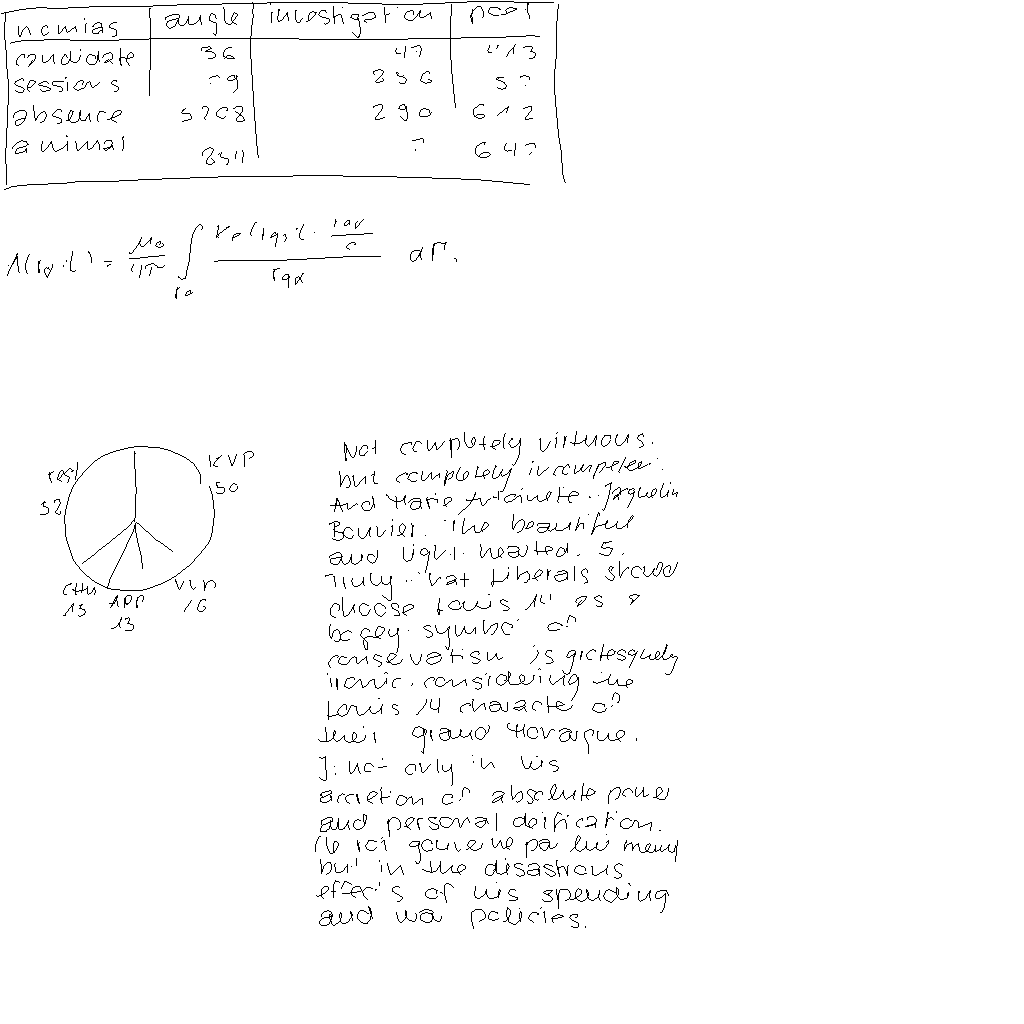 angle investigation
candidate 36 47 413
sessions 79 236 57
absence 5708 290 612
animal 8511 7 647
μ0
4π
rest
52
KVP
50
13
APP
13
16
Not completely virtuous.
but completely incompeten.
And Marie Antoinete. Jaquelin
Bouvier. The beautiful
and light hearted. S.
Truly. that Liberals should
choose Louis 14 as a
bogey symbol of
conservatism is grotesquely
ironic. considering the
Louis 14 character of
their grand Monarque.
J. not only in his
accretion of absolute power
and personal deification.
but in the disastrous
effects of his spending
and war policies.